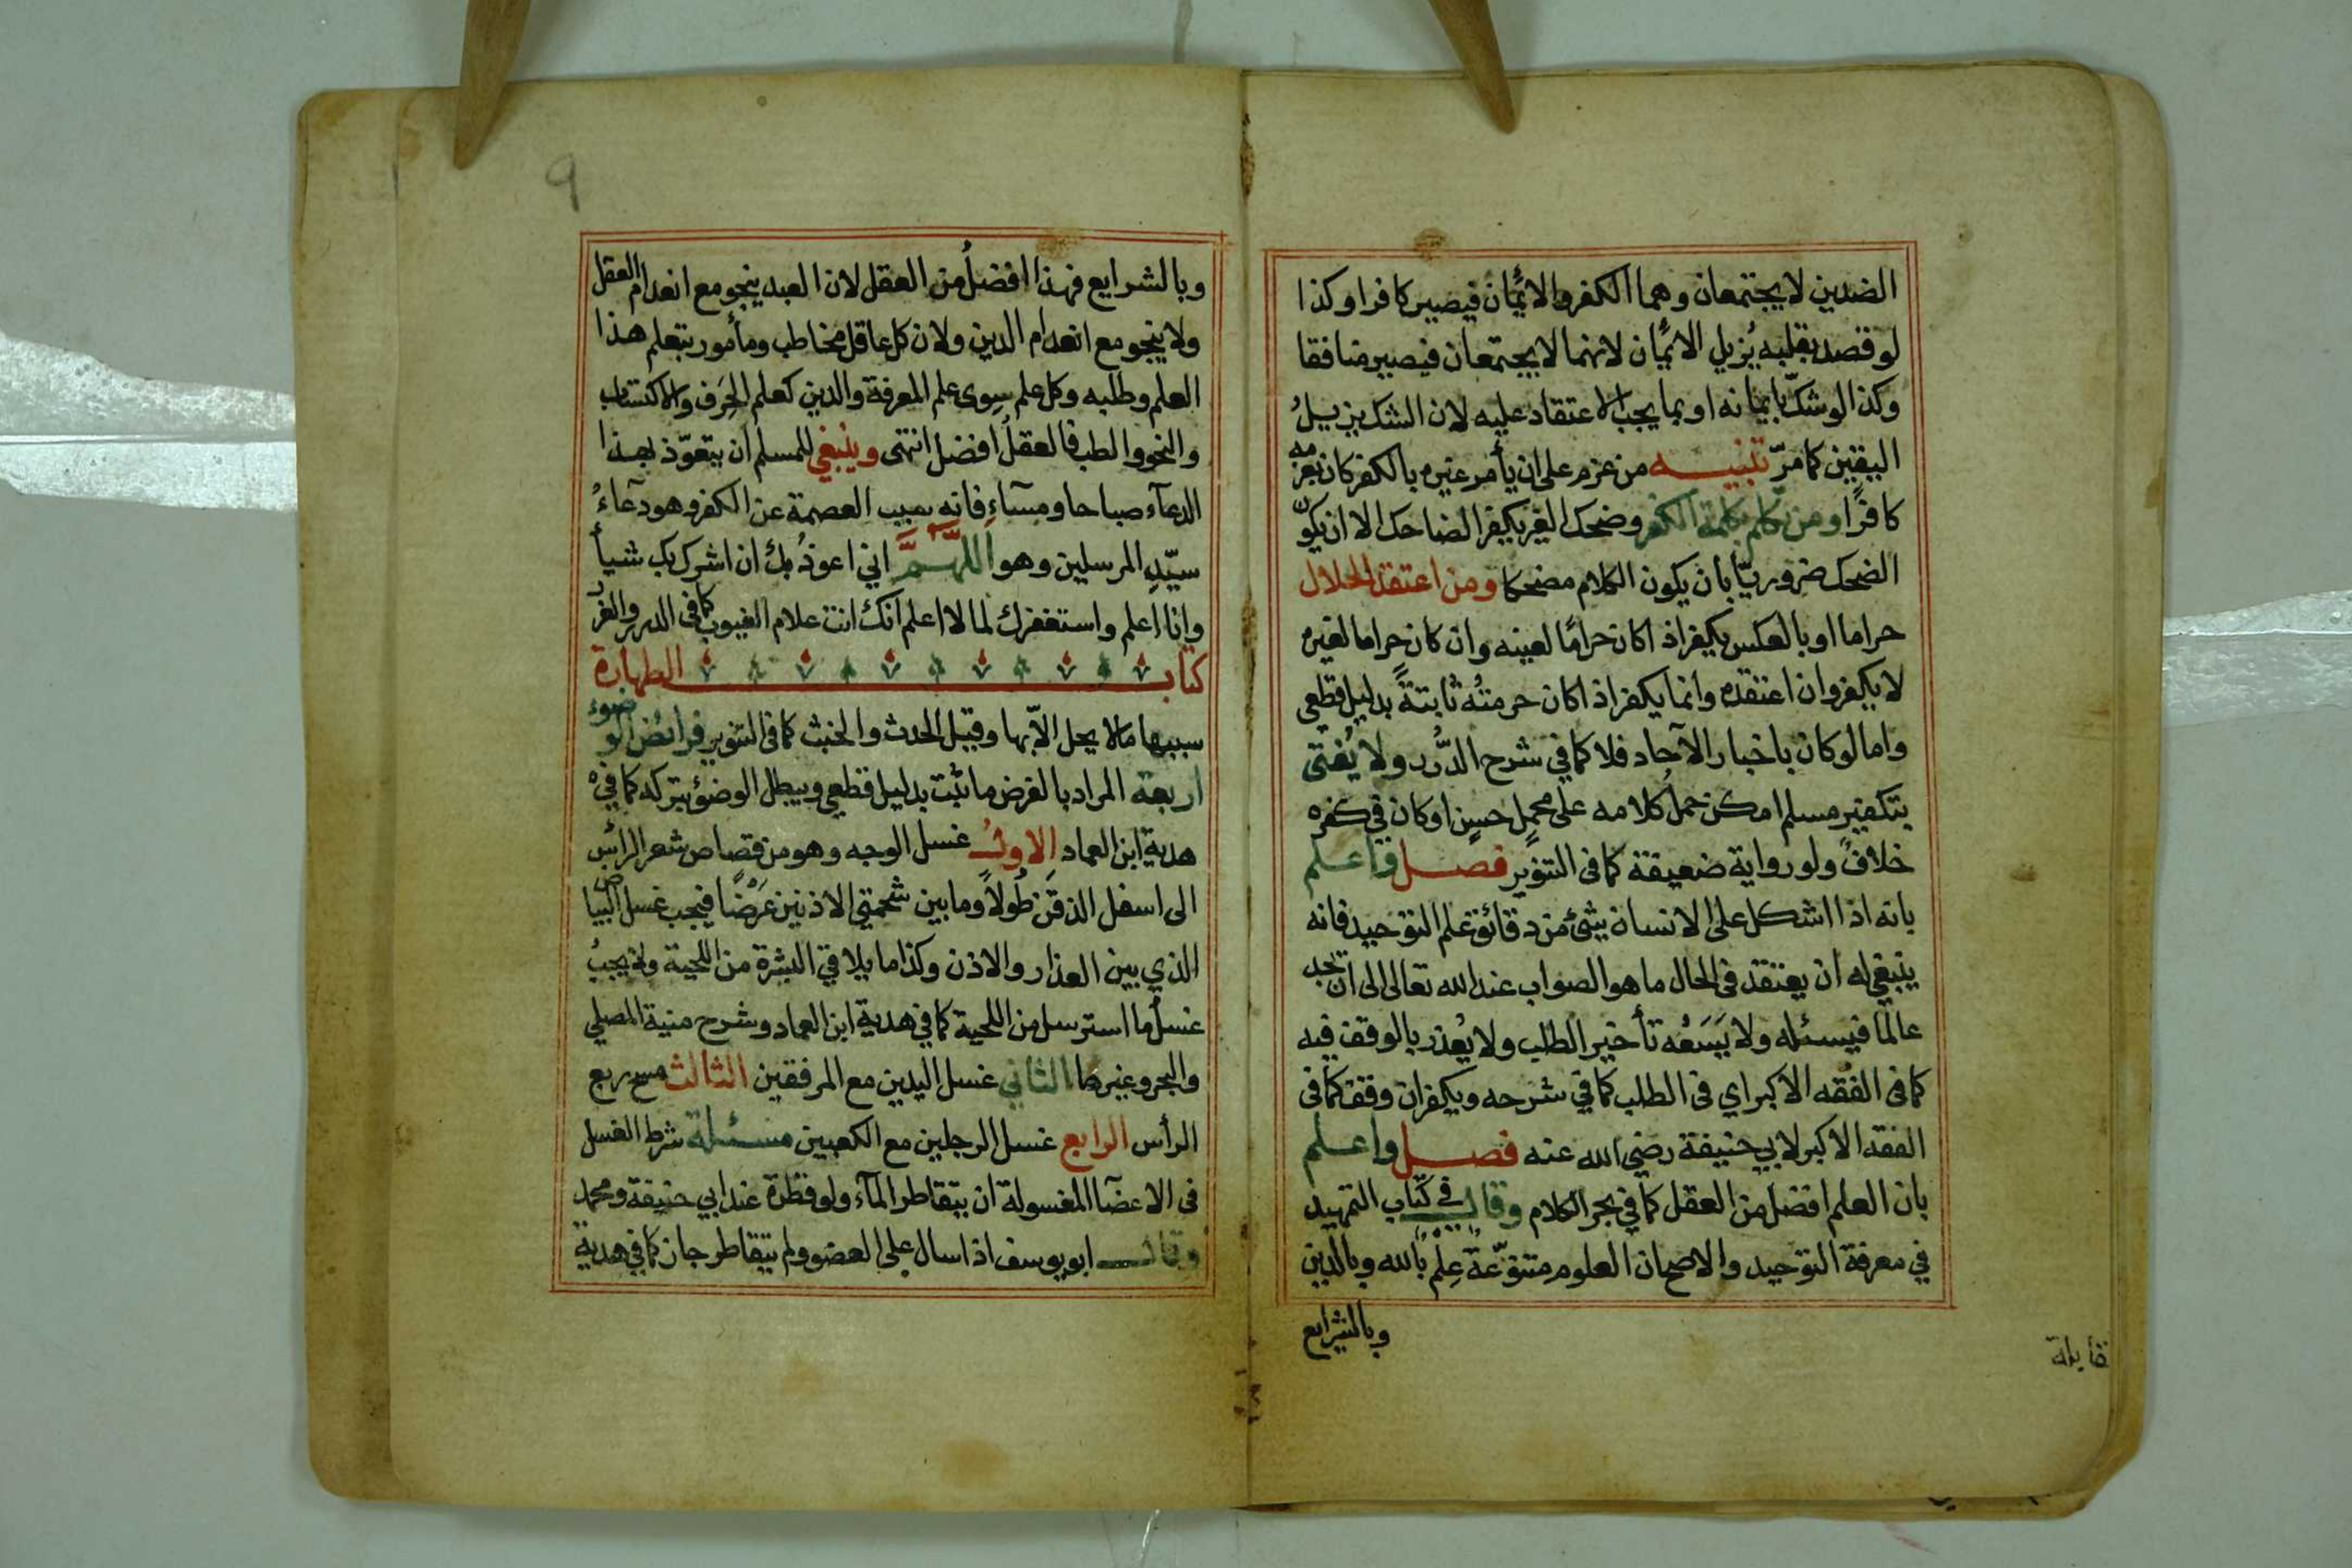 الضدين لا يجتمعان وهما الكفر والايمان فيصير كافرا وكذا
لو قصد بقلبه يزيل الايمان لانهما لا يجتمعان فيصير منافقا
وكذا لو شكّ بايمانه او بما يجب الاعتقاد عليه لان الشك يزيلُ
اليقين كما مرّ تنبيه من عزم على ان يأمر غيره بالكفر كان بعزمه
كافرًا ومن تكلم بكلمة الكفر وضحك الغير يكفر الضاحك الا ان يكون
الضحك ضروريّا بان يكون الكلام مضحكا ومن اعتقد الحلال
حراما او بالعكس يكفر اذا كان حرامًا لعينه وان كان حراما لغيره
لا يكفر وان اعتقده وانما يكفر اذا كان حرمتُه ثابتةً بدليل قطعي
واما لو كان باخبار الآحاد فلا كما في شرح الدُّرر ولا يُفتى
بتكفير مسلم امكن حملُ كلامه على محملٍ حسنٍ او كان في كفره
خلافٌ ولو رواية ضعيفة كما في التنوير فصل واعلم
بانه اذا اشكل على الانسان شئ من دقائق علم التوحيد فانه
ينبغي له ان يعتقد في الحال ما هو الصواب عند الله تعالى الى ان تجد
عالما فيسئله ولا يَسَعُه تأخير الطلب ولا يُعذر بالوقف فيه
كما في الفقه الاكبر اي في الطلب كما في شرحه ويكفر ان وقف كما في
الفقه الاكبر لابي حنيفة رضي الله عنه فصل واعلم
بان العلم افضل من العقل كما في بحر الكلام وقال في كتاب التمهيد
في معرفة التوحيد والاصح ان العلوم متنوّعةٌ عِلْمٌ بالله وبالدين
وبالشرايع
وبالشرايع فهذا افضلُ من العقل لان العبد ينجو مع انعدام العقل
ولا ينجو مع انعدام الدين ولان كل عاقل مخاطب ومأمور بتعلم هذا
العلم وطلبه وكل علم سِوى علم المعرفة والدين كعلم الحِرَف والاكتساب
والنحو والطب فالعقلُ افضل انتهى وينبغي للمسلم ان يتعوّذ بهذا
الدعآء صباحا ومسآءً فانه سبب العصمة عن الكفر وهو دعآءُ
سيّد المرسلين وهو اللهمّ اني اعوذُ بك ان اشرك بك شيأ
وانا اعلم واستغفرك لما لا اعلم انك انت علام الغيوب كما في الدرر والغرر
كتاب الطهارة
سببها ما لا يحل الاّ بها وقيل الحدث والخبث كما في التنوير فرائض الوضوء
اربعة المراد بالفرض ما ثبت بدليل قطعي ويبطل الوضؤ بتركه كما في
هدية ابن العماد الاول غسل الوجه وهو من قصاص شعر الرأس
الى اسفل الذقن طُولاً وما بين شحمتي الاذنين عَرْضًا فيجب غسل البياض
الذي بين العذار والاذن وكذا ما يلاقي البشرة من اللحية ولا يجبُ
غسلُ ما استرسل من اللحية كما في هدية ابن العماد وشرح منية المصلي
والبحر وغيرها الثاني غسل اليدين مع المرفقين الثالث مسح ربع
الرأس الرابع غسل الرجلين مع الكعبين مسئلة شرط الغسل
في الاعضآ المغسولة ان يتقاطر المآء ولو قطرة عند ابي حنيفة ومحمد
وقال ابو يوسف اذا سال على العضو ولم يتقاطر جاز كما في هدية
٩